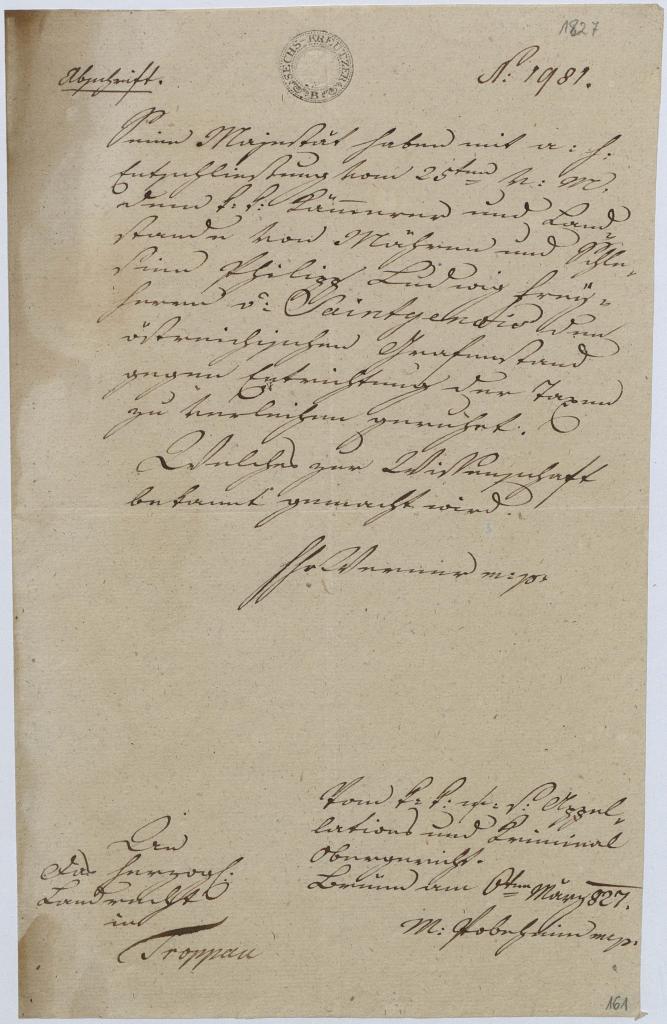 1827
Abschrift.
SECHS-KREUTZER
N: 1981.
Seine Majestät haben mit a: h:
Entschließung vom 25ten v: M.
dem k: k: Kämmerer und Land-
stande von Mähren und Schle-
sien Philipp Ludwig Frey-
herrn v: Saintgenois den
östreichischen Grafenstand
gegen Entrichtung der Taxen
zu verleihen geruhet.
Welches zur Wissenschaft
bekannt gemacht wird.
m:p:
Vom k: k: m: s: Appel-
lations und Kriminal
Obergericht.
Brünn am 6ten März 827.
M: m:p:
An
das herzogl:
Landrecht
in
Troppau
161